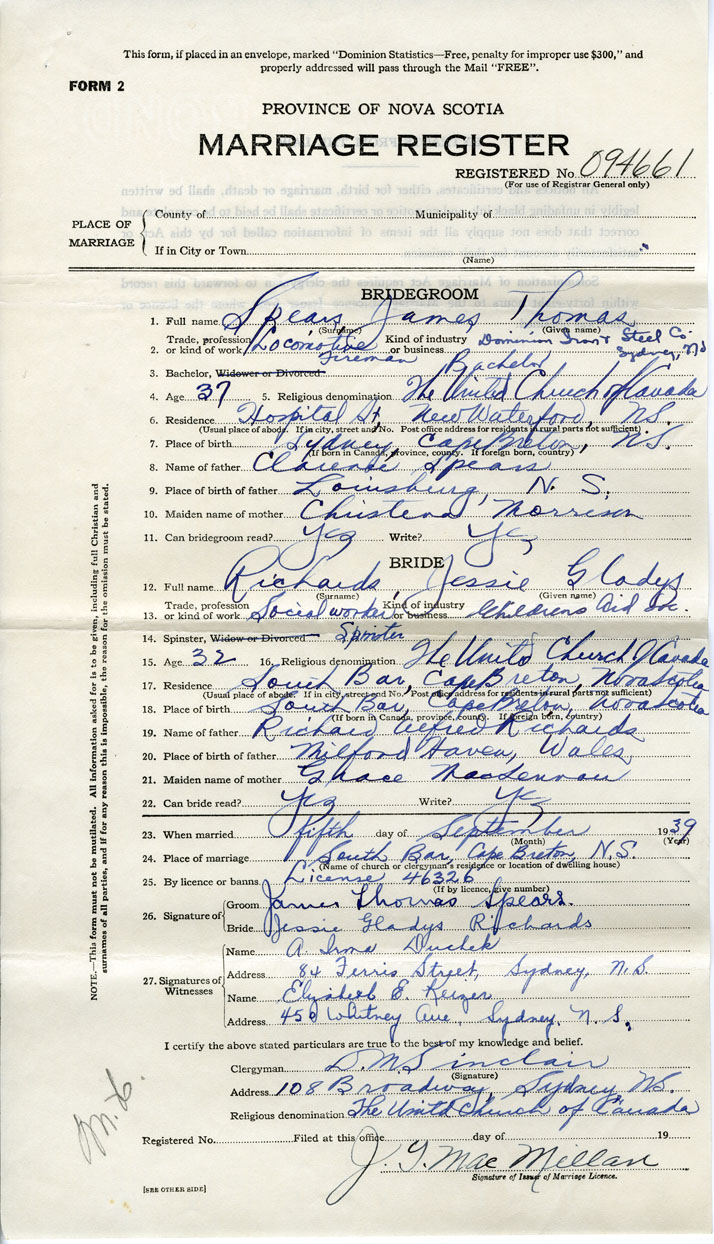 This form, if placed in an envelope, marked "Dominion Statistics—Free, penalty for improper use $300," and
properly addressed will pass through the Mail "FREE".
FORM 2
PROVINCE OF NOVA SCOTIA
MARRIAGE REGISTER
REGISTERED No. 094661
(For use of Registrar General only)
PLACE OF MARRIAGE
County of Municipality of
If in City or Town
(Name)
BRIDEGROOM
1. Full name Spears James Thomas
(Surname) (Given name)
2. Trade, profession or kind of work Locomotive Fireman Kind of industry or business Dominion Iron & Steel Co. Sydney, NS
3. Bachelor, Widower or Divorced Bachelor
4. Age 37 5. Religious denomination The United Church of Canada
6. Residence Hospital St, New Waterford, N.S.
(Usual place of abode. If in city, street and No. Post office address for residents in rural parts not sufficient)
7. Place of birth Sydney, Cape Breton, N.S.
(If born in Canada, province, county. If foreign born, country)
8. Name of father Clarence Spears
9. Place of birth of father Louisburg, N. S.
10. Maiden name of mother Christena Morrison
11. Can bridegroom read? Yes Write? Yes
BRIDE
12. Full name Richards, Jessie Gladys
(Surname) (Given name)
13. Trade, profession or kind of work Social worker Kind of industry or business Childrens Aid Soc.
14. Spinster, Widow or Divorced Spinster
15. Age 32 16. Religious denomination The United Church of Canada
17. Residence South Bar, Cape Breton, Nova Scotia
(Usual place of abode. If in city, street and No. Post office address for residents in rural parts not sufficient)
18. Place of birth South Bar, Cape Breton, Nova Scotia
(If born in Canada, province, county. If foreign born, country)
19. Name of father Richard Alfred Richards
20. Place of birth of father Milford Haven, Wales,
21. Maiden name of mother Grace MacLennan
22. Can bride read? Yes Write? Yes
23. When married fifth day of September 1939
(Month) (Year)
24. Place of marriage South Bar, Cape Breton, N.S.
(Name of church or clergyman's residence or location of dwelling house)
25. By licence or banns License 46326
(If by licence, give number)
26. Signature of
Groom James Thomas Spears.
Bride Jessie Gladys Richards
27. Signatures of Witnesses
Name A. Irma
Address 84 Ferris Street, Sydney, N.S.
Name Elizabeth E. Keizer
Address Whitney Ave, Sydney, N. S.
I certify the above stated particulars are true to the best of my knowledge and belief.
Clergyman D. M Sinclair
(Signature)
Address 108 Broadway, Sydney NS.
Religious denomination The United Church of Canada
Registered No. Filed at this office day of 19
J. G. MacMillan
Signature of Issuer of Marriage Licence.
[SEE OTHER SIDE]
NOTE.—This form must not be mutilated. All information asked for is to be given, including full Christian and
surnames of all parties, and if for any reason this is impossible, the reason for the omission must be stated.